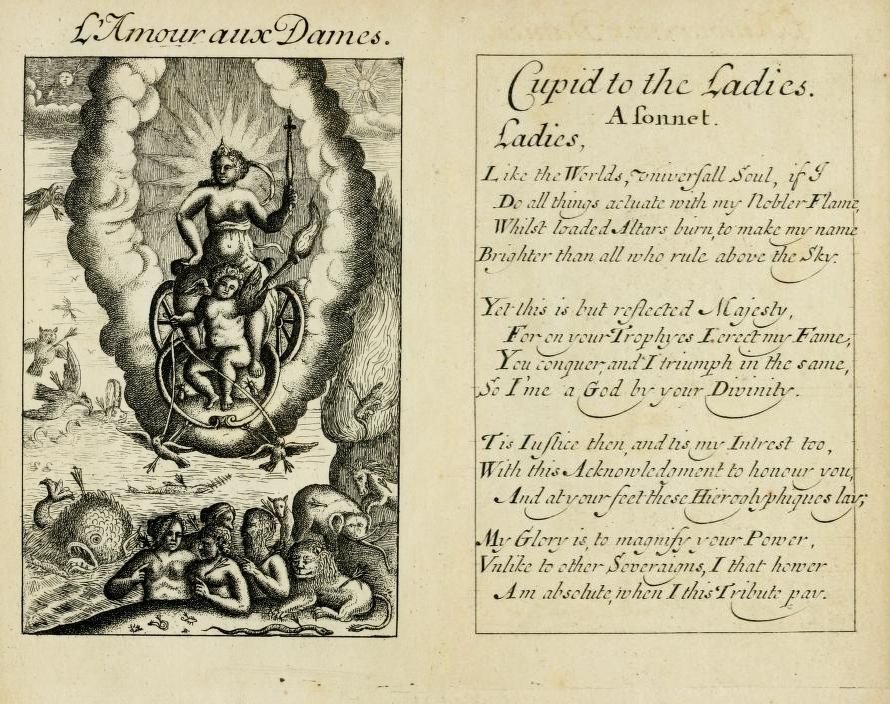 L'Amour aux Dames.
Cupid to the Ladies.
A sonnet.
Ladies,
Like the Worlds, vniversall Soul, if I
Do all things actuate with my Nobler Flame,
Whilst loaded Altars burn, to make my name
Brighter than all who rule above the Sky.
Yet this is but reflected Majesty,
For on your Trophyes I erect my Fame,
You conquer, and I triumph in the same,
So I'me a God by your Divinity.
Tis Iustice then, and tis my Intrest too,
With this Acknowledgment to honour you,
And at your feet these Hieroglyphiques lay;
My Glory is, to magnify your Power,
Vnlike to other Soveraigns, I that hower
Am absolute, when I this Tribute pay.